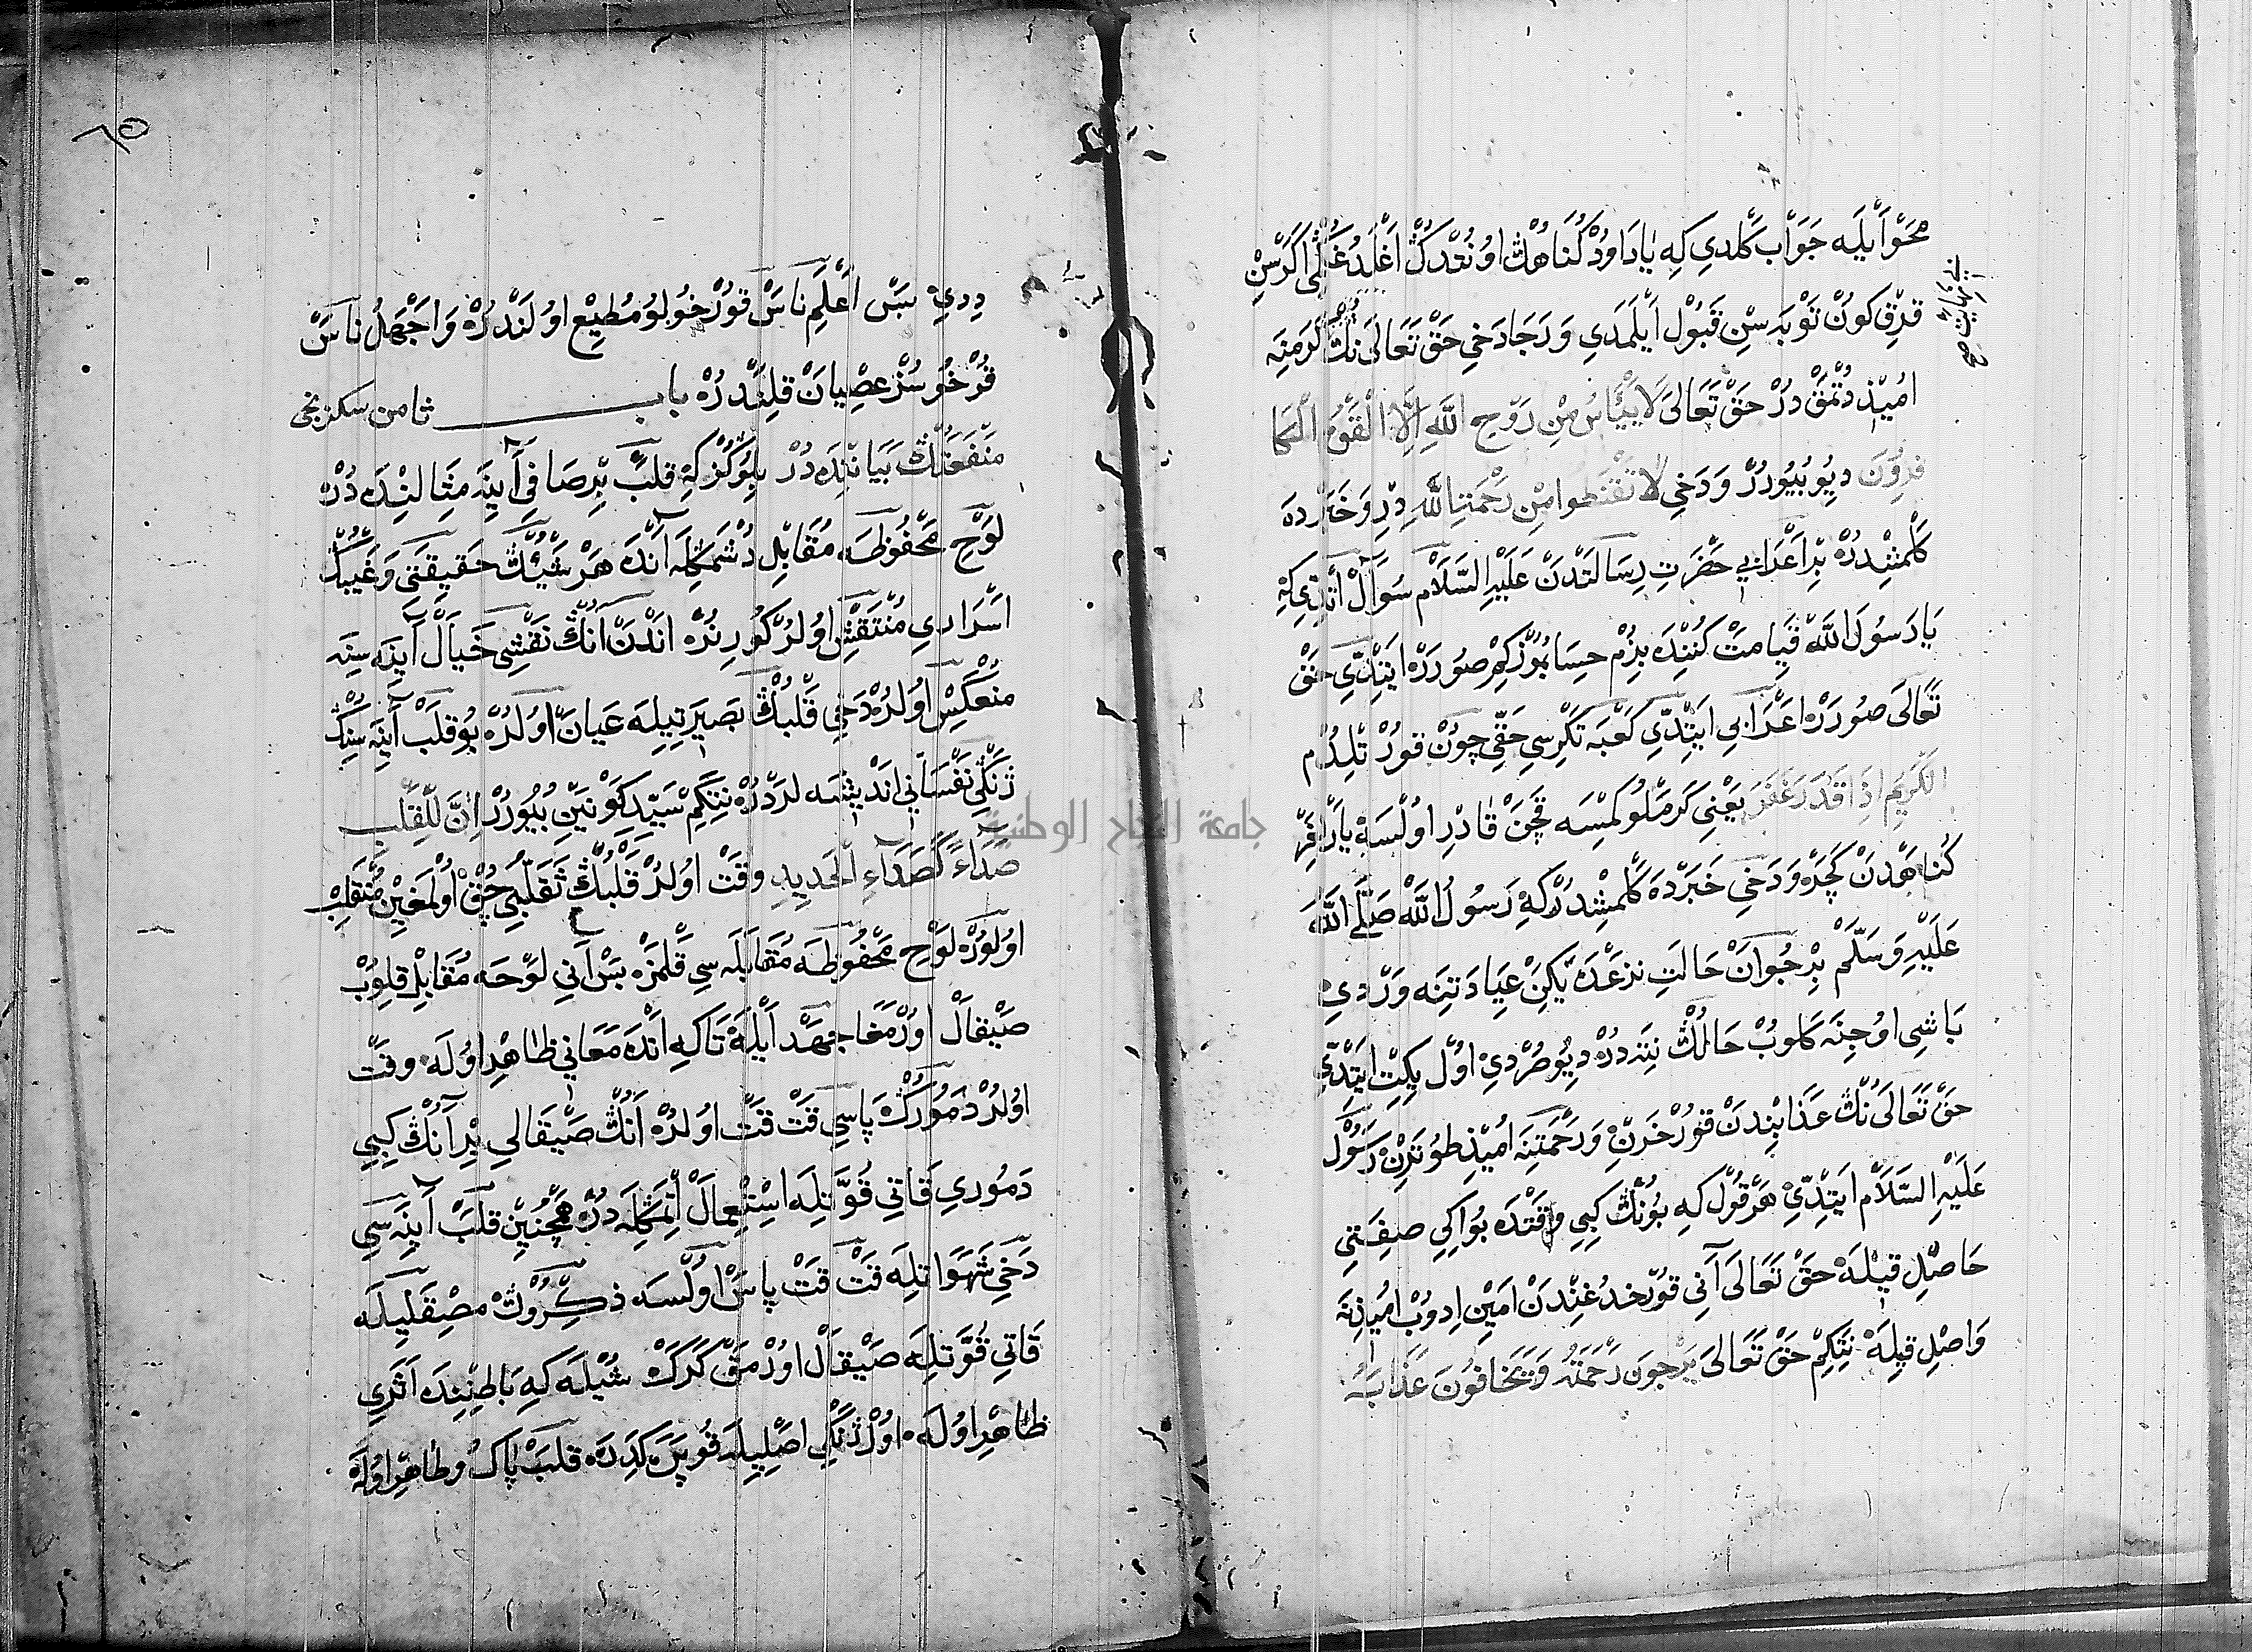 محو أيله جواب كلدي كه يا داود كناهڭ اونتدڭ اغلدغڭى اكرسن
قرق كون توبه سن قبول أيلمدي و رجا دخي حق تعالى نڭ كرمنه
اميذ دتمق در حق تعالى لا ييأس من روح الله الا القوم الكا
فرون ديو بيورر و دخي لا تقنطوا من رحمة الله در و خبرده
كلمشدر بر اعرابي حضرت رسالتدن عليه السلام سؤال أتدى كه
يا رسول الله قيامت كننده بزم حسابمز كم صورر ايتدي حق
تعالى صورر اعرابي ايتدي كعبه تكرسي حقى چون قورتلدم
الكريم اذا قدر غفر يعنى كرملو كمسه قچن قادر اولسه يارلغر
كناهدن كچر و دخي خبرده كلمشدر كه رسول الله صلى الله
عليه و سلم بر جوان حالت نزعده يكن عيادتنه وردي
باشى اوجنه كلوب حالڭ نته در ديو صردي اول يكت ايتدي
حق تعالى نڭ عذابندن قورخرن و رحمتنه اميذ طوترن رسول
عليه السلام ايتدي هر قول كه بونڭ كبي وقتده بو اكي صفتى
حاصل قيله حق تعالى آنى قورخدغندن امين ادوب اميذنه
واصل قيله نتكم حق تعالى يرجون رحمته و يخافون عذابه
٦٥
ددي بس اعلم ناس قورخولو مطيع اولندر و اجهل ناس
قرخوسز عصيان قلندر باب ثامن سكزنجى
منفعتڭ بياننده در بلوكز كه قلب بر صافي أينه مثالنده در
لوح محفوظه مقابل دشمكله أنده هر شيئڭ حقيقتى و غيبڭ
اسرارى منتقش اولر كورنر اندن انڭ نقشى خيال آينه سنه
منعكس اولر دخي قلبڭ بصيرتيله عيان اولر بو قلب أينه سنڭ
ژنكى نفساني انديشه لردر نتكم سيد كونين بيورر ان للقلب
صداء كصداء الحديد وقت اولر قلبڭ تقلبى چق اولمغين منقلب
اولور لوح محفوظه مقابله سى قلمز بس أنى لوحه مقابل قلوب
صيقال اورمغا جهد أيله تاكه انده معاني ظاهر اوله وقت
اولر دمورڭ پاسى قت قت اولر انڭ صيقالى بر انڭ كيبى
دمورى قاتى قوتله استعمال أتمكله در همچنين قلب أينه سى
دخي شهواتله قت قت پاس اولسه ذكروڭ مصقليله
قاتى قوتله صيقال اورمق كرك شيله كه باطننده اثرى
ظاهر اوله اول ژنكى اصليله قوپر كدر قلب پاك و طاهر اوله
جامعة النجاح الوطنية